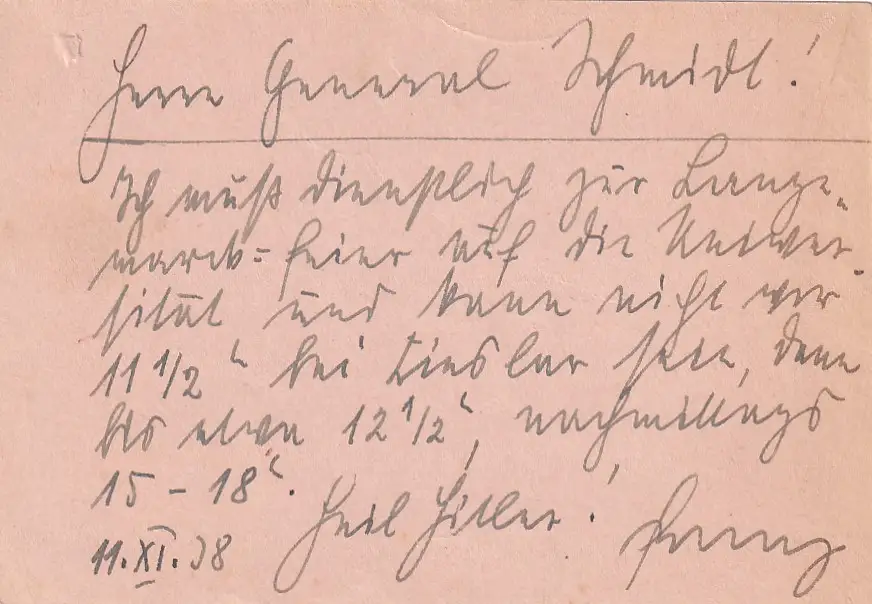 Herrn General Schmidt!
Ich muß dienstlich zur Lange-
marck=feier auf die Univer-
sität und kann nicht vor
11 1/2 h bei sein, dann
bis etwa 12 1/2 h, nachmittags
15 - 18 h.
Heil Hitler!
11.XI.38